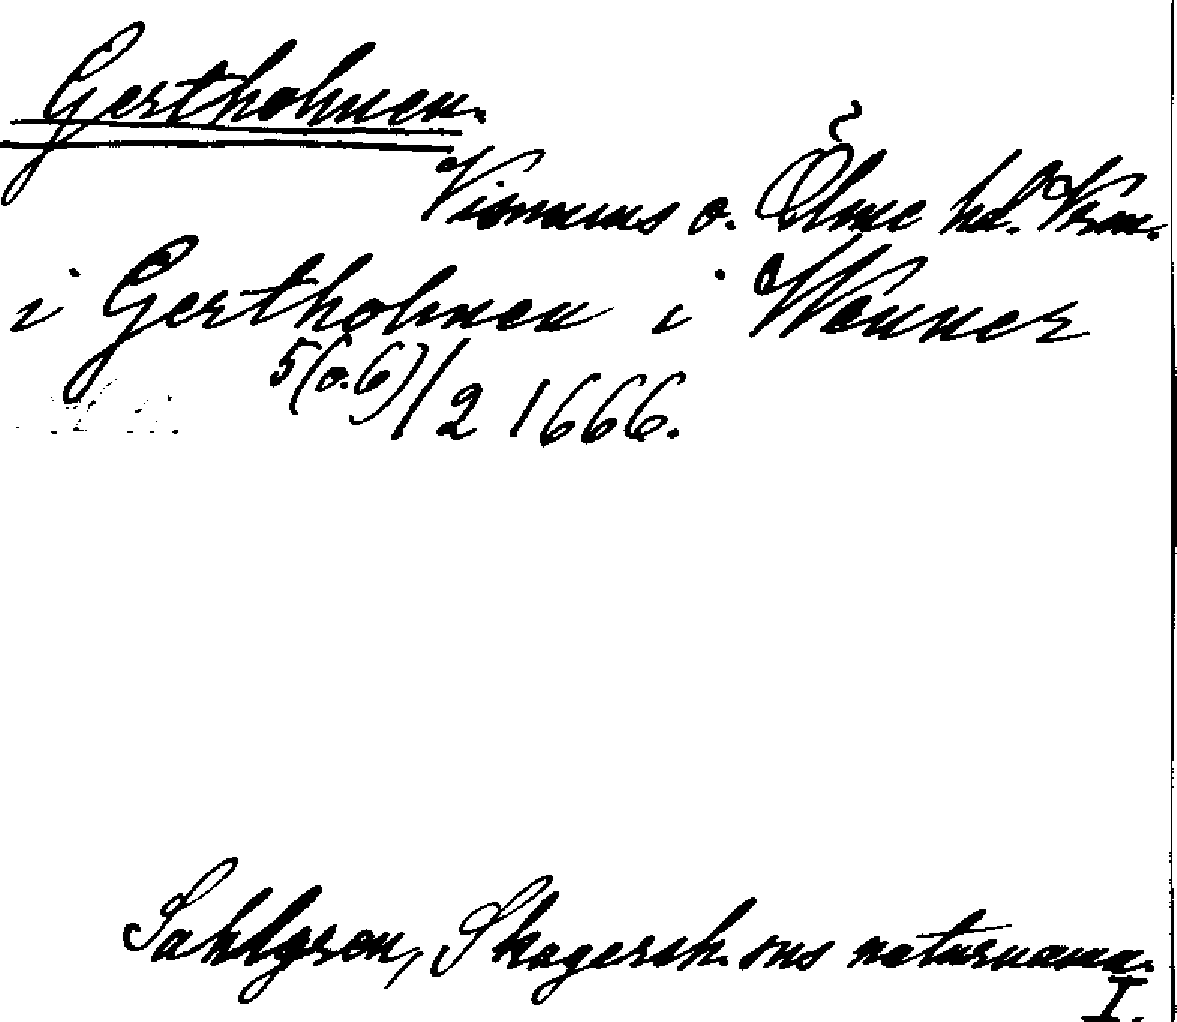 Gertholmen.
Visnums o. Ölme hd. Vrm.
i Gertholmen i Wenner
5(o.6)/2 1666.
Sahlgren, Skagersh. sns naturnamn.
I.